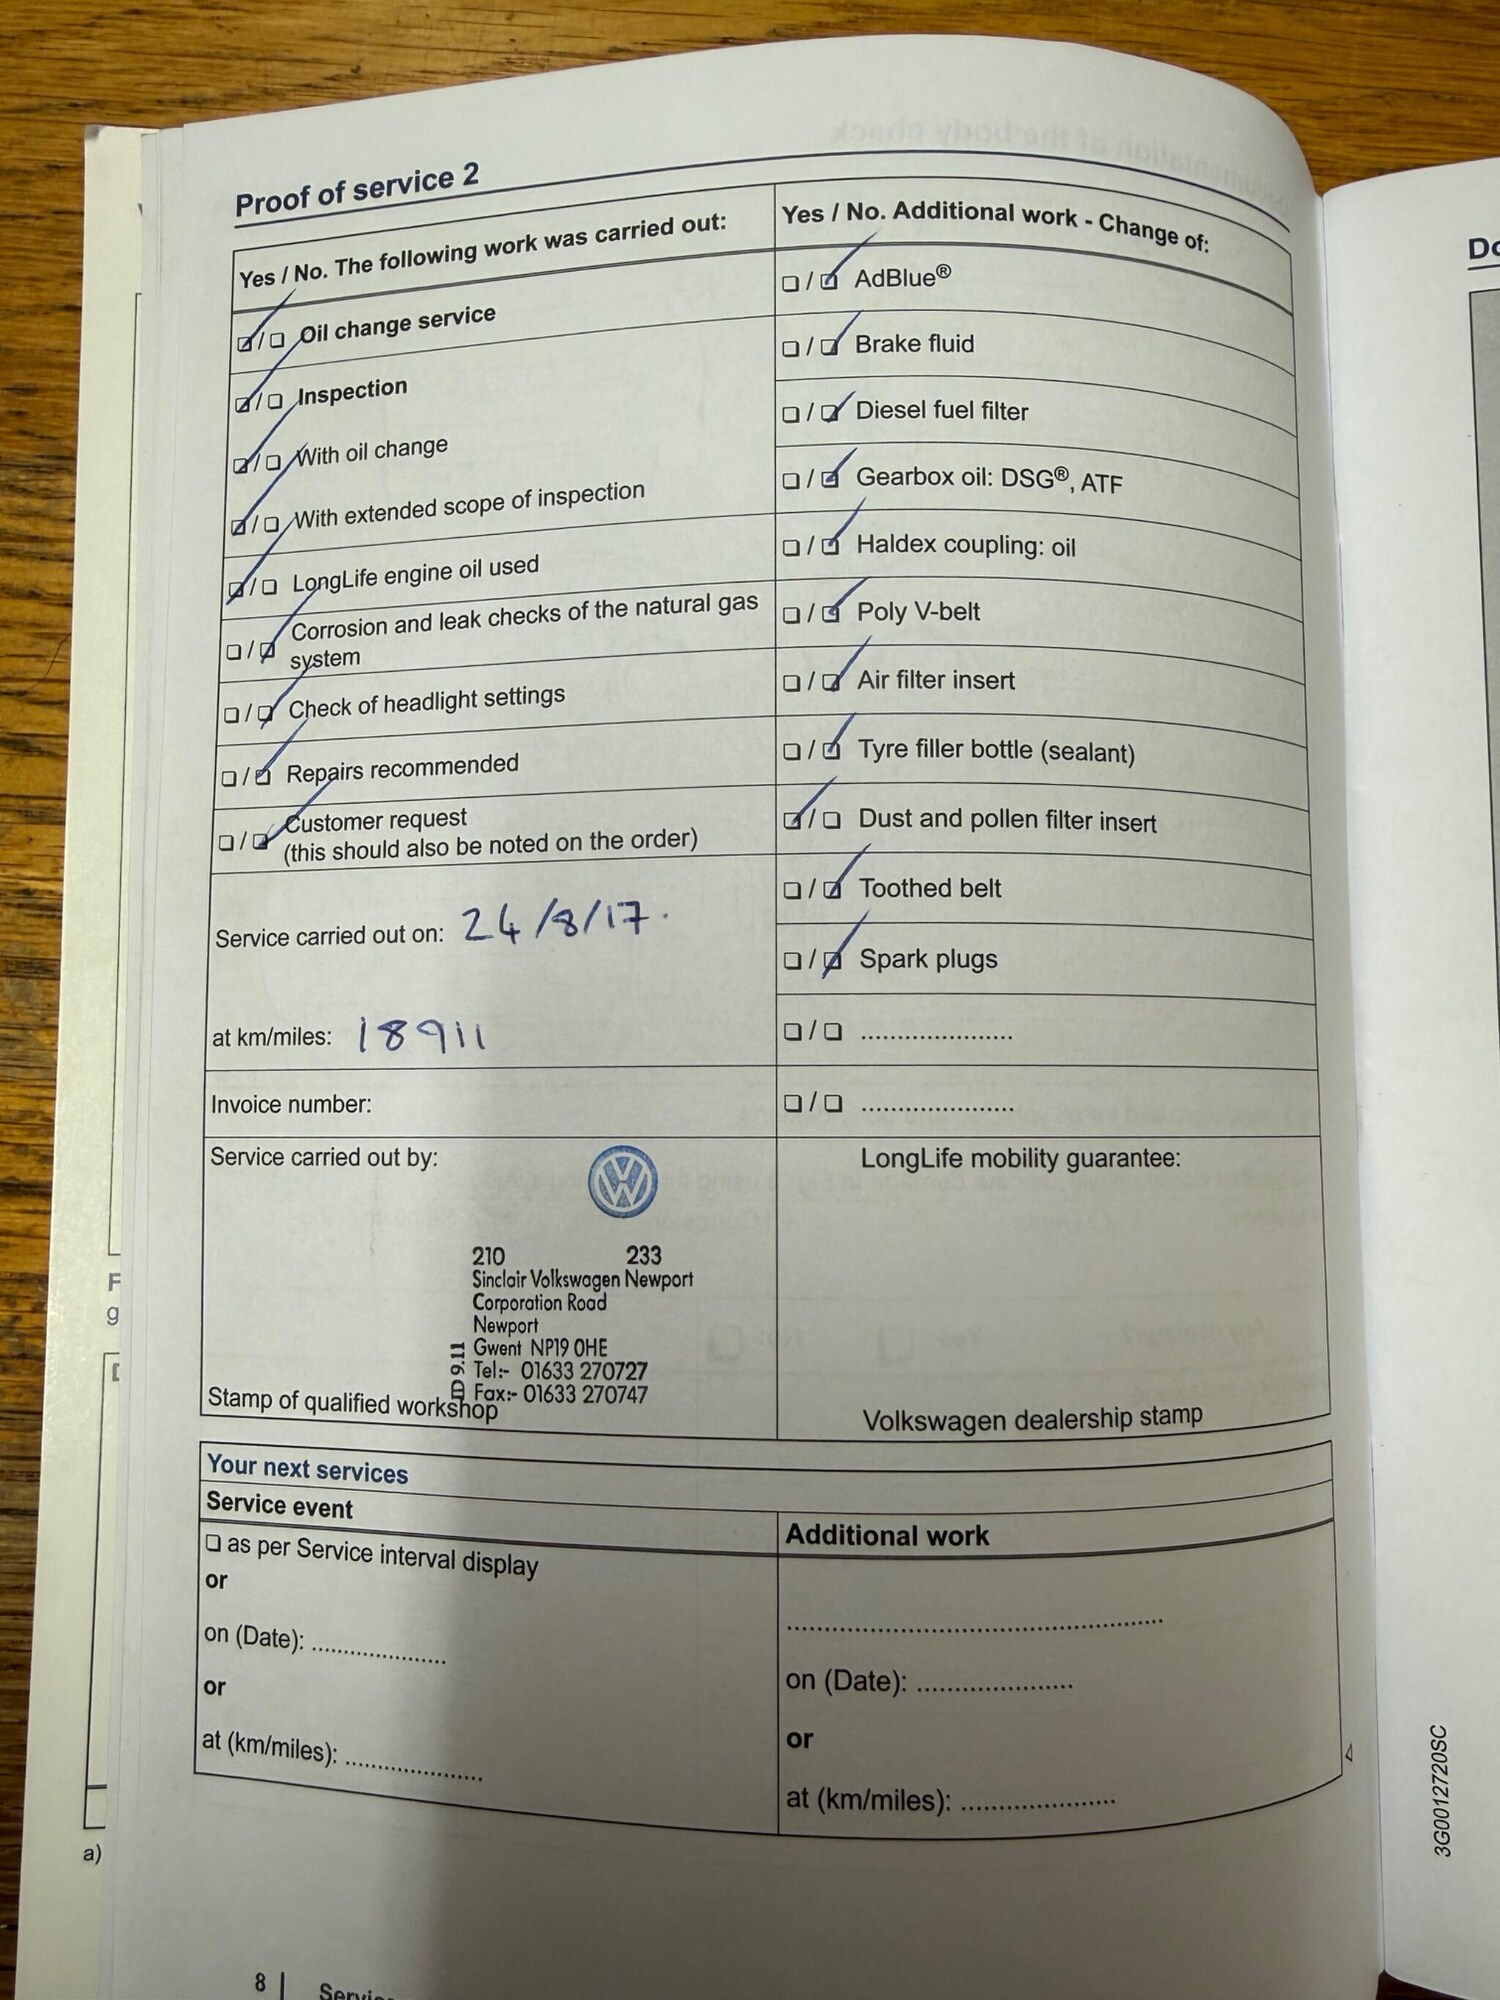 Proof of service 2
Yes / No. The following work was carried out:
☑/☐ Oil change service
☑/☐ Inspection
☑/☐ With oil change
☑/☐ With extended scope of inspection
☑/☐ LongLife engine oil used
☐/☑ Corrosion and leak checks of the natural gas
system
☐/☑ Check of headlight settings
☐/☑ Repairs recommended
☐/☑ Customer request
(this should also be noted on the order)
Service carried out on: 24/8/17.
at km/miles: 18911
Invoice number:
Service carried out by:
VW
210 233
Sinclair Volkswagen Newport
Corporation Road
Newport
Gwent NP19 0HE
Tel:- 01633 270727
Fax:- 01633 270747
Stamp of qualified workshop
Yes / No. Additional work - Change of:
☐/☑ AdBlue®
☐/☑ Brake fluid
☐/☑ Diesel fuel filter
☐/☑ Gearbox oil: DSG®, ATF
☐/☑ Haldex coupling: oil
☐/☑ Poly V-belt
☐/☑ Air filter insert
☐/☑ Tyre filler bottle (sealant)
☑/☐ Dust and pollen filter insert
☐/☑ Toothed belt
☐/☑ Spark plugs
☐/☐ ......................
☐/☐ ......................
LongLife mobility guarantee:
Volkswagen dealership stamp
Your next services
Service event
☐ as per Service interval display
or
on (Date): ....................
or
at (km/miles): ....................
Additional work
......................................................
on (Date): ......................
or
at (km/miles): ......................
8
3G0012720SC
a)